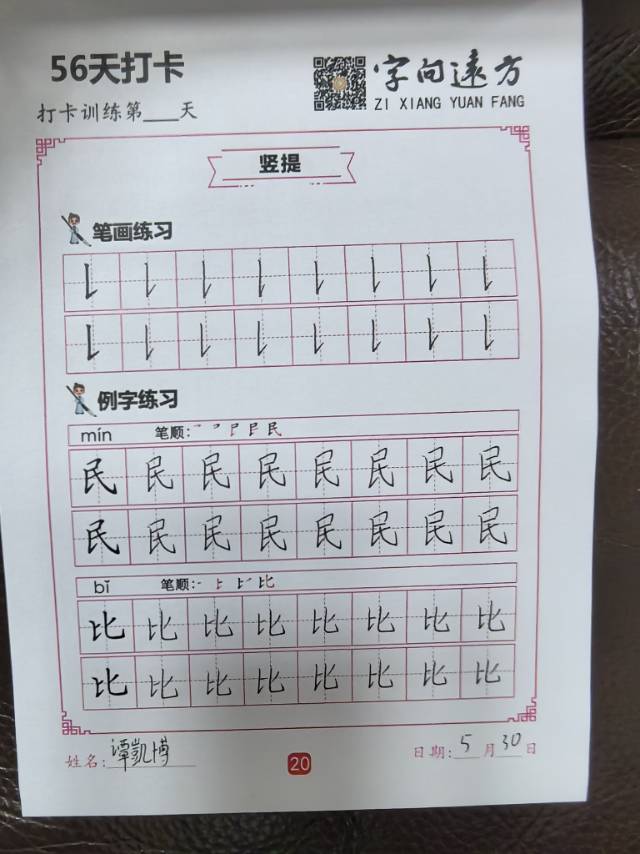 56天打卡
打卡训练第___天
字向远方
ZI XIANG YUAN FANG
竖提
笔画练习
例字练习
mín 笔顺:
民 民 民 民 民 民 民 民
民 民 民 民 民 民 民 民
bǐ 笔顺:
比 比 比 比 比 比 比 比
比 比 比 比 比 比 比 比
姓名:谭凯博
20
日期:5月30日